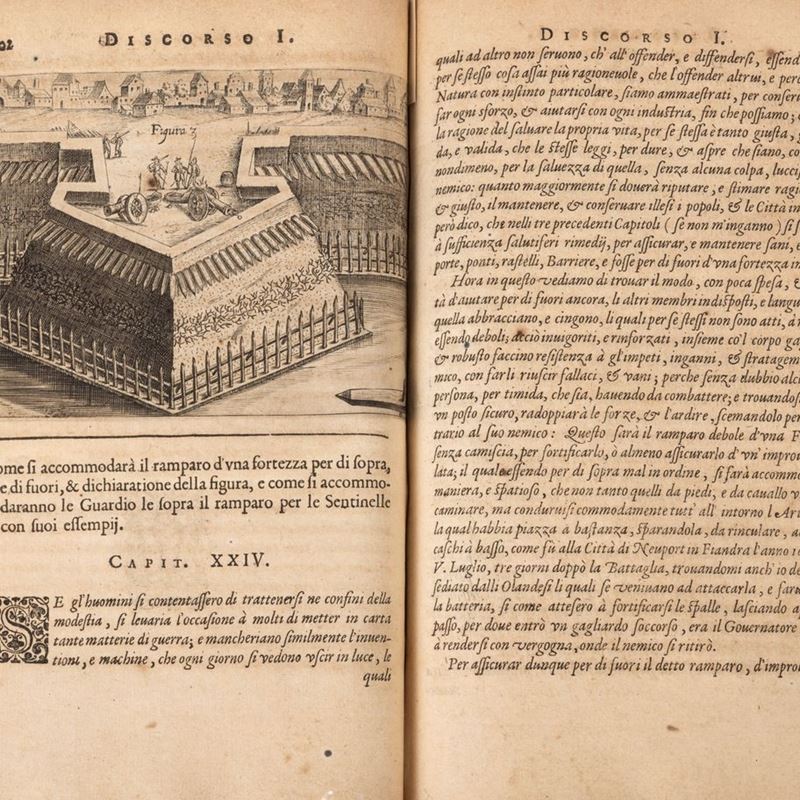 02 DISCORSO I.
Figura 3
ome si accommodarà il ramparo d'vna fortezza per di sopra,
e di fuori, & dichiaratione della figura, e come si accommo-
daranno le Guardio le sopra il ramparo per le Sentinelle
con suoi essempij.
CAPIT. XXIV.
SE gl'huomini si contentassero di trattenersi ne confini della
modestia, si leuaria l'occasione à molti di metter in carta
tante matterie di guerra; e mancheriano similmente l'inuen-
tioni, e machine, che ogni giorno si vedono vscir in luce, le
quali
DISCORSO I.
quali ad altro non seruono, ch' all'offender, e diffendersi, essend
per se stesso cosa assai più ragioneuole, che l'offender altrui, e per
Natura con instinto particolare, siamo ammaestrati, per conser
far ogni sforzo, & aiutarsi con ogni industria, fin che possiamo;
la ragione del saluare la propria vita, per se stessa è tanto giusta,
da, e valida, che le stesse leggi, per dure, & aspre che siano, co
nondimeno, per la saluezza di quella, senza alcuna colpa, lucci
nemico: quanto maggiormente si douerà riputare, e stimare ragi
& giusto, il mantenere, & conseruare illesi i popoli, & le Città in
però dico, che nelli tre precedenti Capitoli (se non m'inganno) si
à sufficienza salutiferi rimedij, per assicurar, e mantenere sani, e
porte, ponti, rastelli, Barriere, e fosse per di fuori d'vna fortezza in
Hora in questo vediamo di trouar il modo, con poca spesa, &
tà d'autare per di fuori ancora, li altri membri indisposti, e langu
quella abbracciano, e cingono, li quali per se stessi non sono atti, à
essendo deboli; acciò inuigoriti, e rinforzati, insieme co'l corpo ga
& robusto faccino resistenza à gl'impeti, inganni, & stratagem
mico, con farli riuscir fallaci, & vani; perche senza dubbio alc
persona, per timida, che sia, hauendo da combattere; e trouandos
vn posto sicuro, radoppiarà le forze, & l'ardire, scemandolo per
trario al suo nemico: Questo sarà il ramparo debole d'vna F
senza camiscia, per fortificarlo, ò almeno assicurarlo d'vn' impro
lata; il qual essendo per di sopra mal in ordine, si farà accomm
maniera, e spatioso, che non tanto quelli da piedi, e da cauallo v
caminare, ma condursi commodamente tutt' all' intorno l'Art
la qual habbia piazza à bastanza, sparandola, da rinculare, a
caschi à basso, come fù alla Città di Neuport in Fiandra l'anno 16
V. Luglio, tre giorni doppò la Battaglia, trouandomi anch' io de
sediato dalli Olandesi li quali se veniuano ad attaccarla, e far
la batteria, si come attesero à fortificarsi le spalle, lasciando a
passo, per doue entrò vn gagliardo soccorso, era il Gouernatore
à rendersi con vergogna, onde il nemico si ritirò.
Per assicurar dunque per di fuori il detto ramparo, d'impro